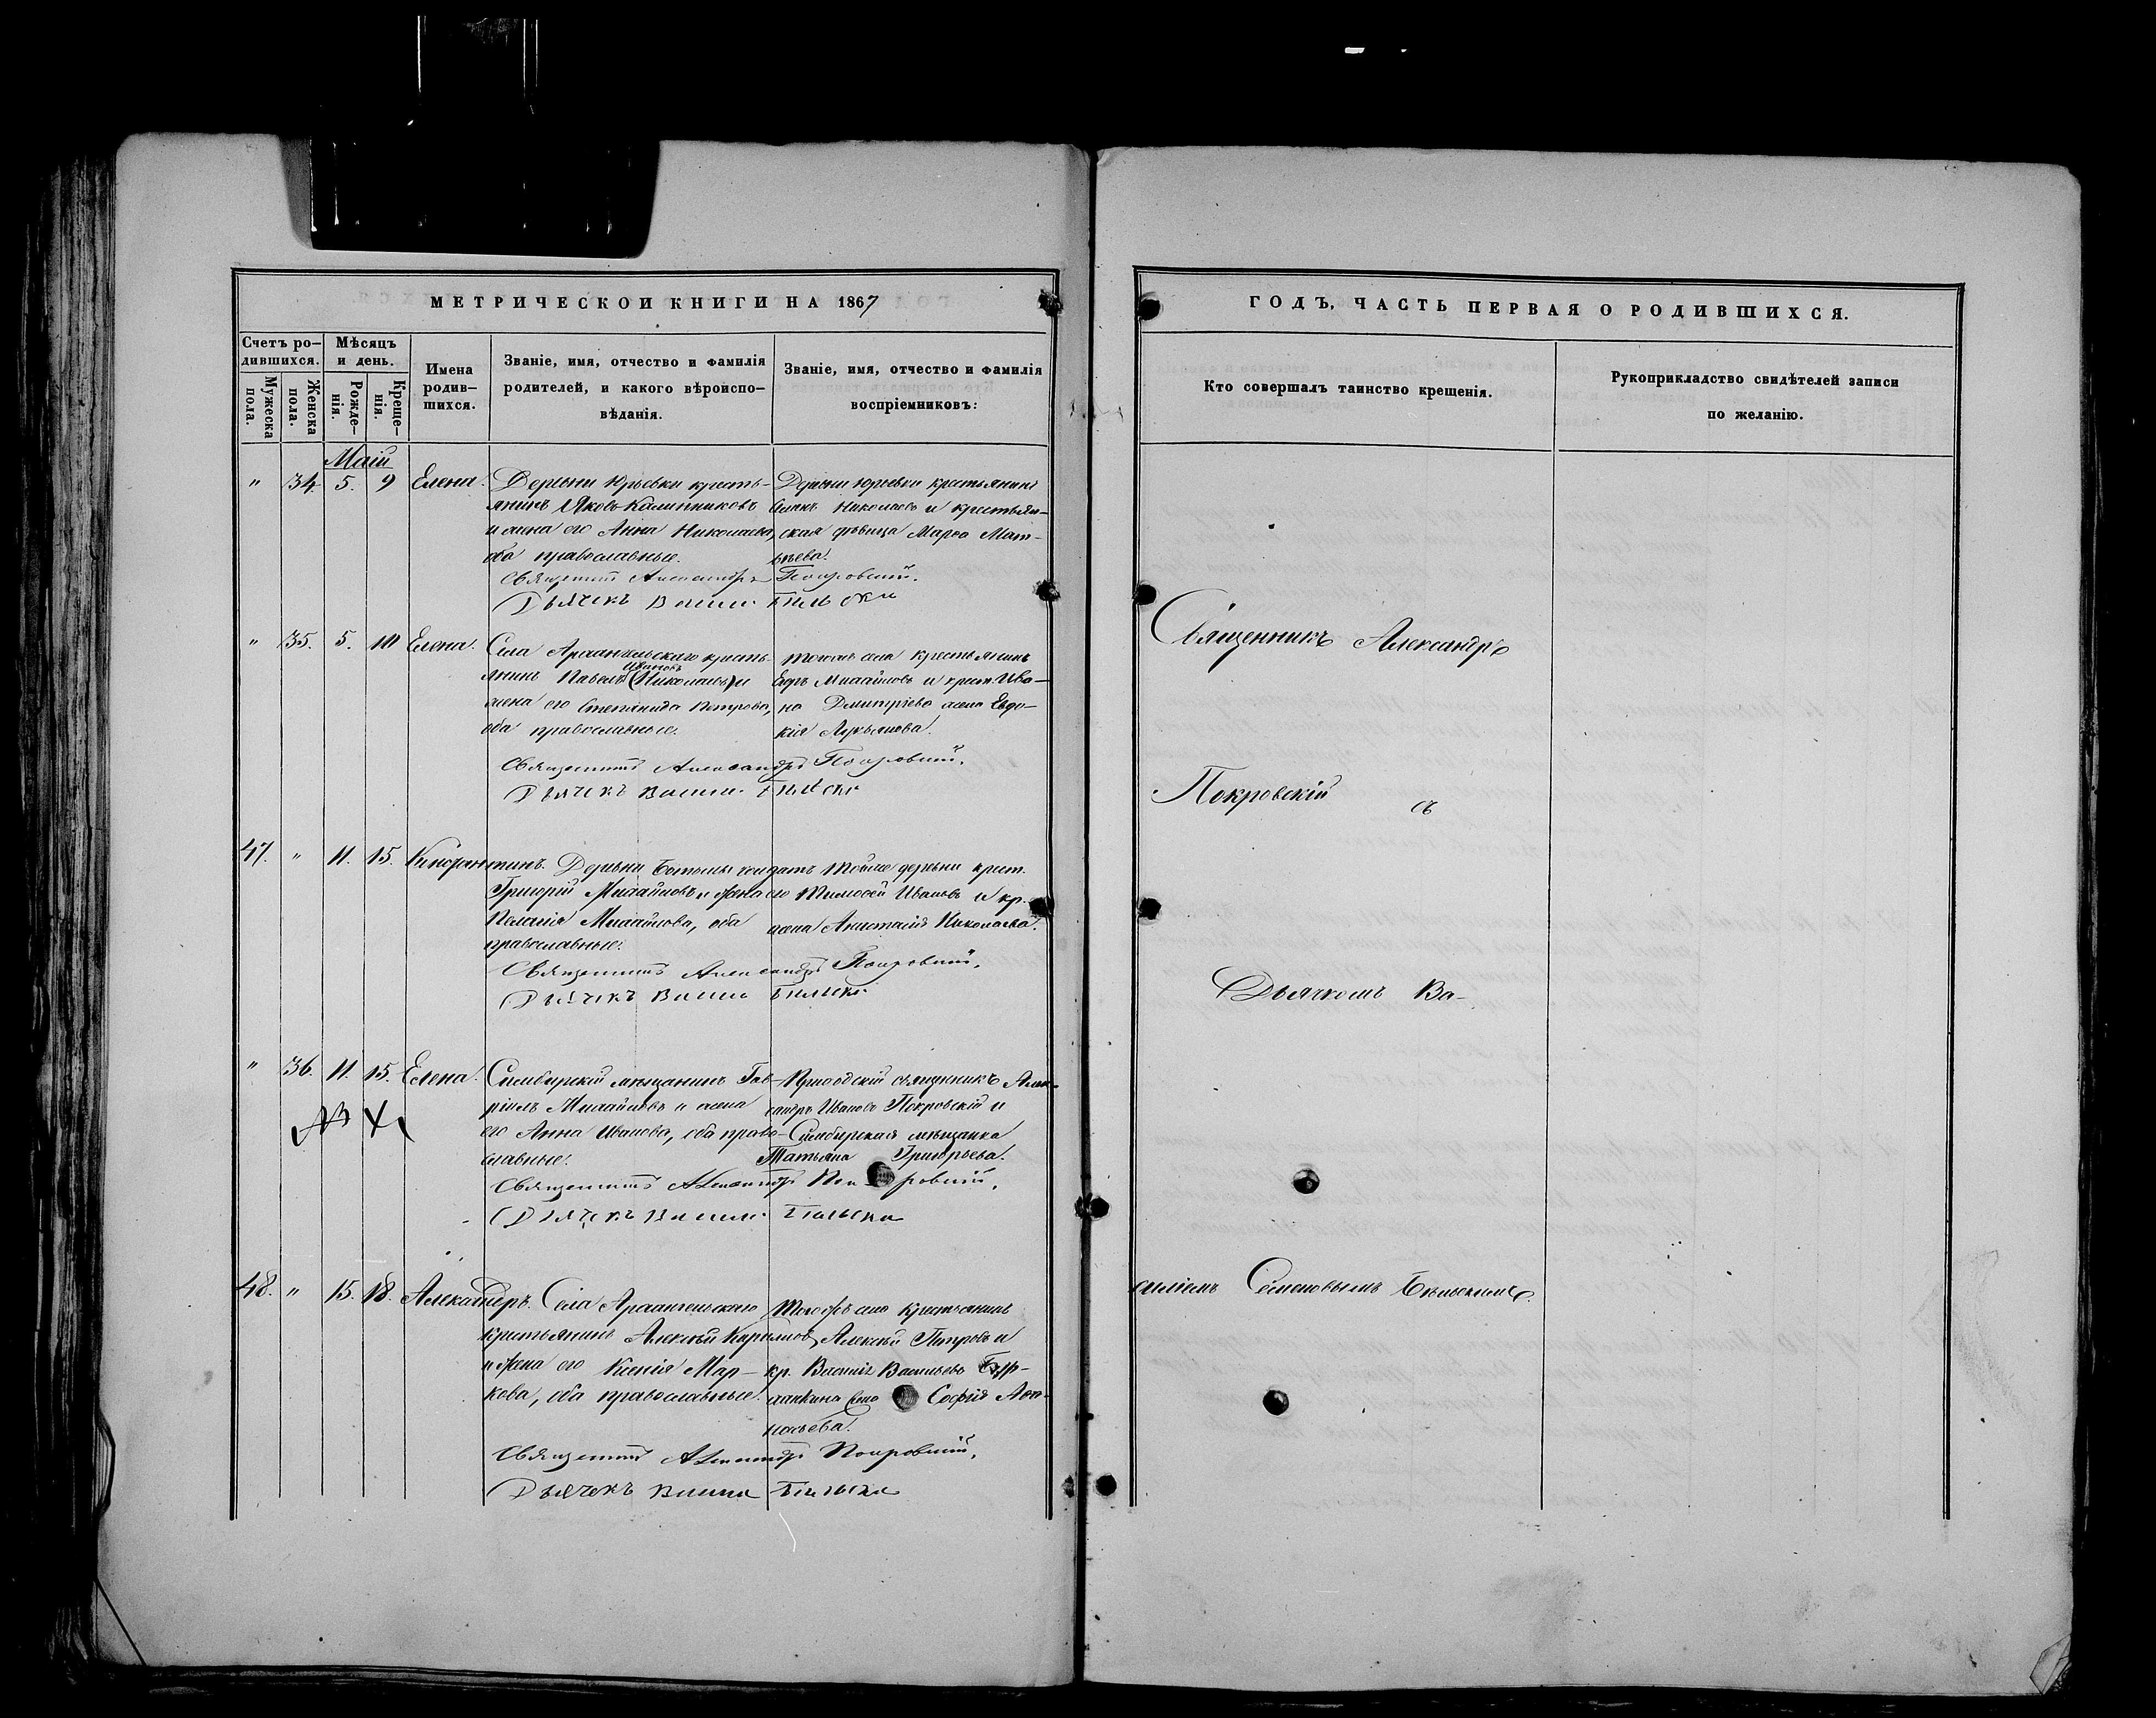 МЕТРИЧЕСКОИ КНИГИ НА 1867
Счетъ ро-
дившихся.
Мужеска
пола.
Женска
пола.
Мѣсяцъ
и день.
Рожде-
нія.
Креще-
нія.
Имена
родив-
шихся.
Званіе, имя, отчество и фамилія
родителей, и какого вѣроиспо-
вѣданія.
Званіе, имя, отчество и фамилія
воспріемниковъ:
Маій
" 34. 5. 9 Елена.
Деревни Юрьевки кресть-
янинъ Яковъ Калинниковъ
и жена его Анна Николаева,
оба православные.
Деревни Юрьевки крестьянинъ
Николаевъ и крестьян-
ская дѣвица Марѳа Мат-
вѣева.
Священникъ Александръ Покровскій.
Дьячекъ Василій Бѣльскій
" 35. 5. 10 Елена.
Села Архангельскаго кресть-
янинъ Павелъ Ивановъ (Николаевъ) и
жена его Степанида Петрова,
оба православные.
тогожъ села крестьянинъ
Михайловъ и крест. Ива-
на Дмитріева жена Евдо-
кія Лукьянова.
Священникъ Александръ Покровскій.
Дьячекъ Василій Бѣльскій
47. " 11. 15. Константинъ.
Деревни солдатъ
Григорій Михайловъ и жена его
Пелагія Михайлова, оба
православные.
тойже деревни крест.
Тимоѳей Ивановъ и кр.
жена Анастасія Николаева.
Священникъ Александръ Покровскій.
Дьячекъ Василій Бѣльскій
" 36. 11. 15. Елена.
Симбирскій мѣщанинъ Гав-
ріилъ Михайловъ и жена
его Анна Иванова, оба право-
славные.
Приходскій священникъ Алек-
сандръ Ивановъ Покровскій и
Симбирская мѣщанка
Татьяна Григорьева.
Священникъ Александръ Покровскій.
Дьячекъ Василій Бѣльскій
48. " 15. 18. Александръ.
Села Архангельскаго
крестьянинъ Алексѣй
и жена его Ксенія Мар-
кова, оба православные.
тогожъ села крестьянинъ
Алексѣй Петровъ и
кр. Василія Васильева
жена Софія Аѳа-
насьева.
Священникъ Александръ Покровскій.
Дьячекъ Василій Бѣльскій
ГОДЪ, ЧАСТЬ ПЕРВАЯ О РОДИВШИХСЯ.
Кто совершалъ таинство крещенія.
Рукоприкладство свидѣтелей записи
по желанію.
Священникъ Александръ
Покровскій съ
Дьячкомъ Ва-
силіемъ Семеновымъ Бѣльскимъ.